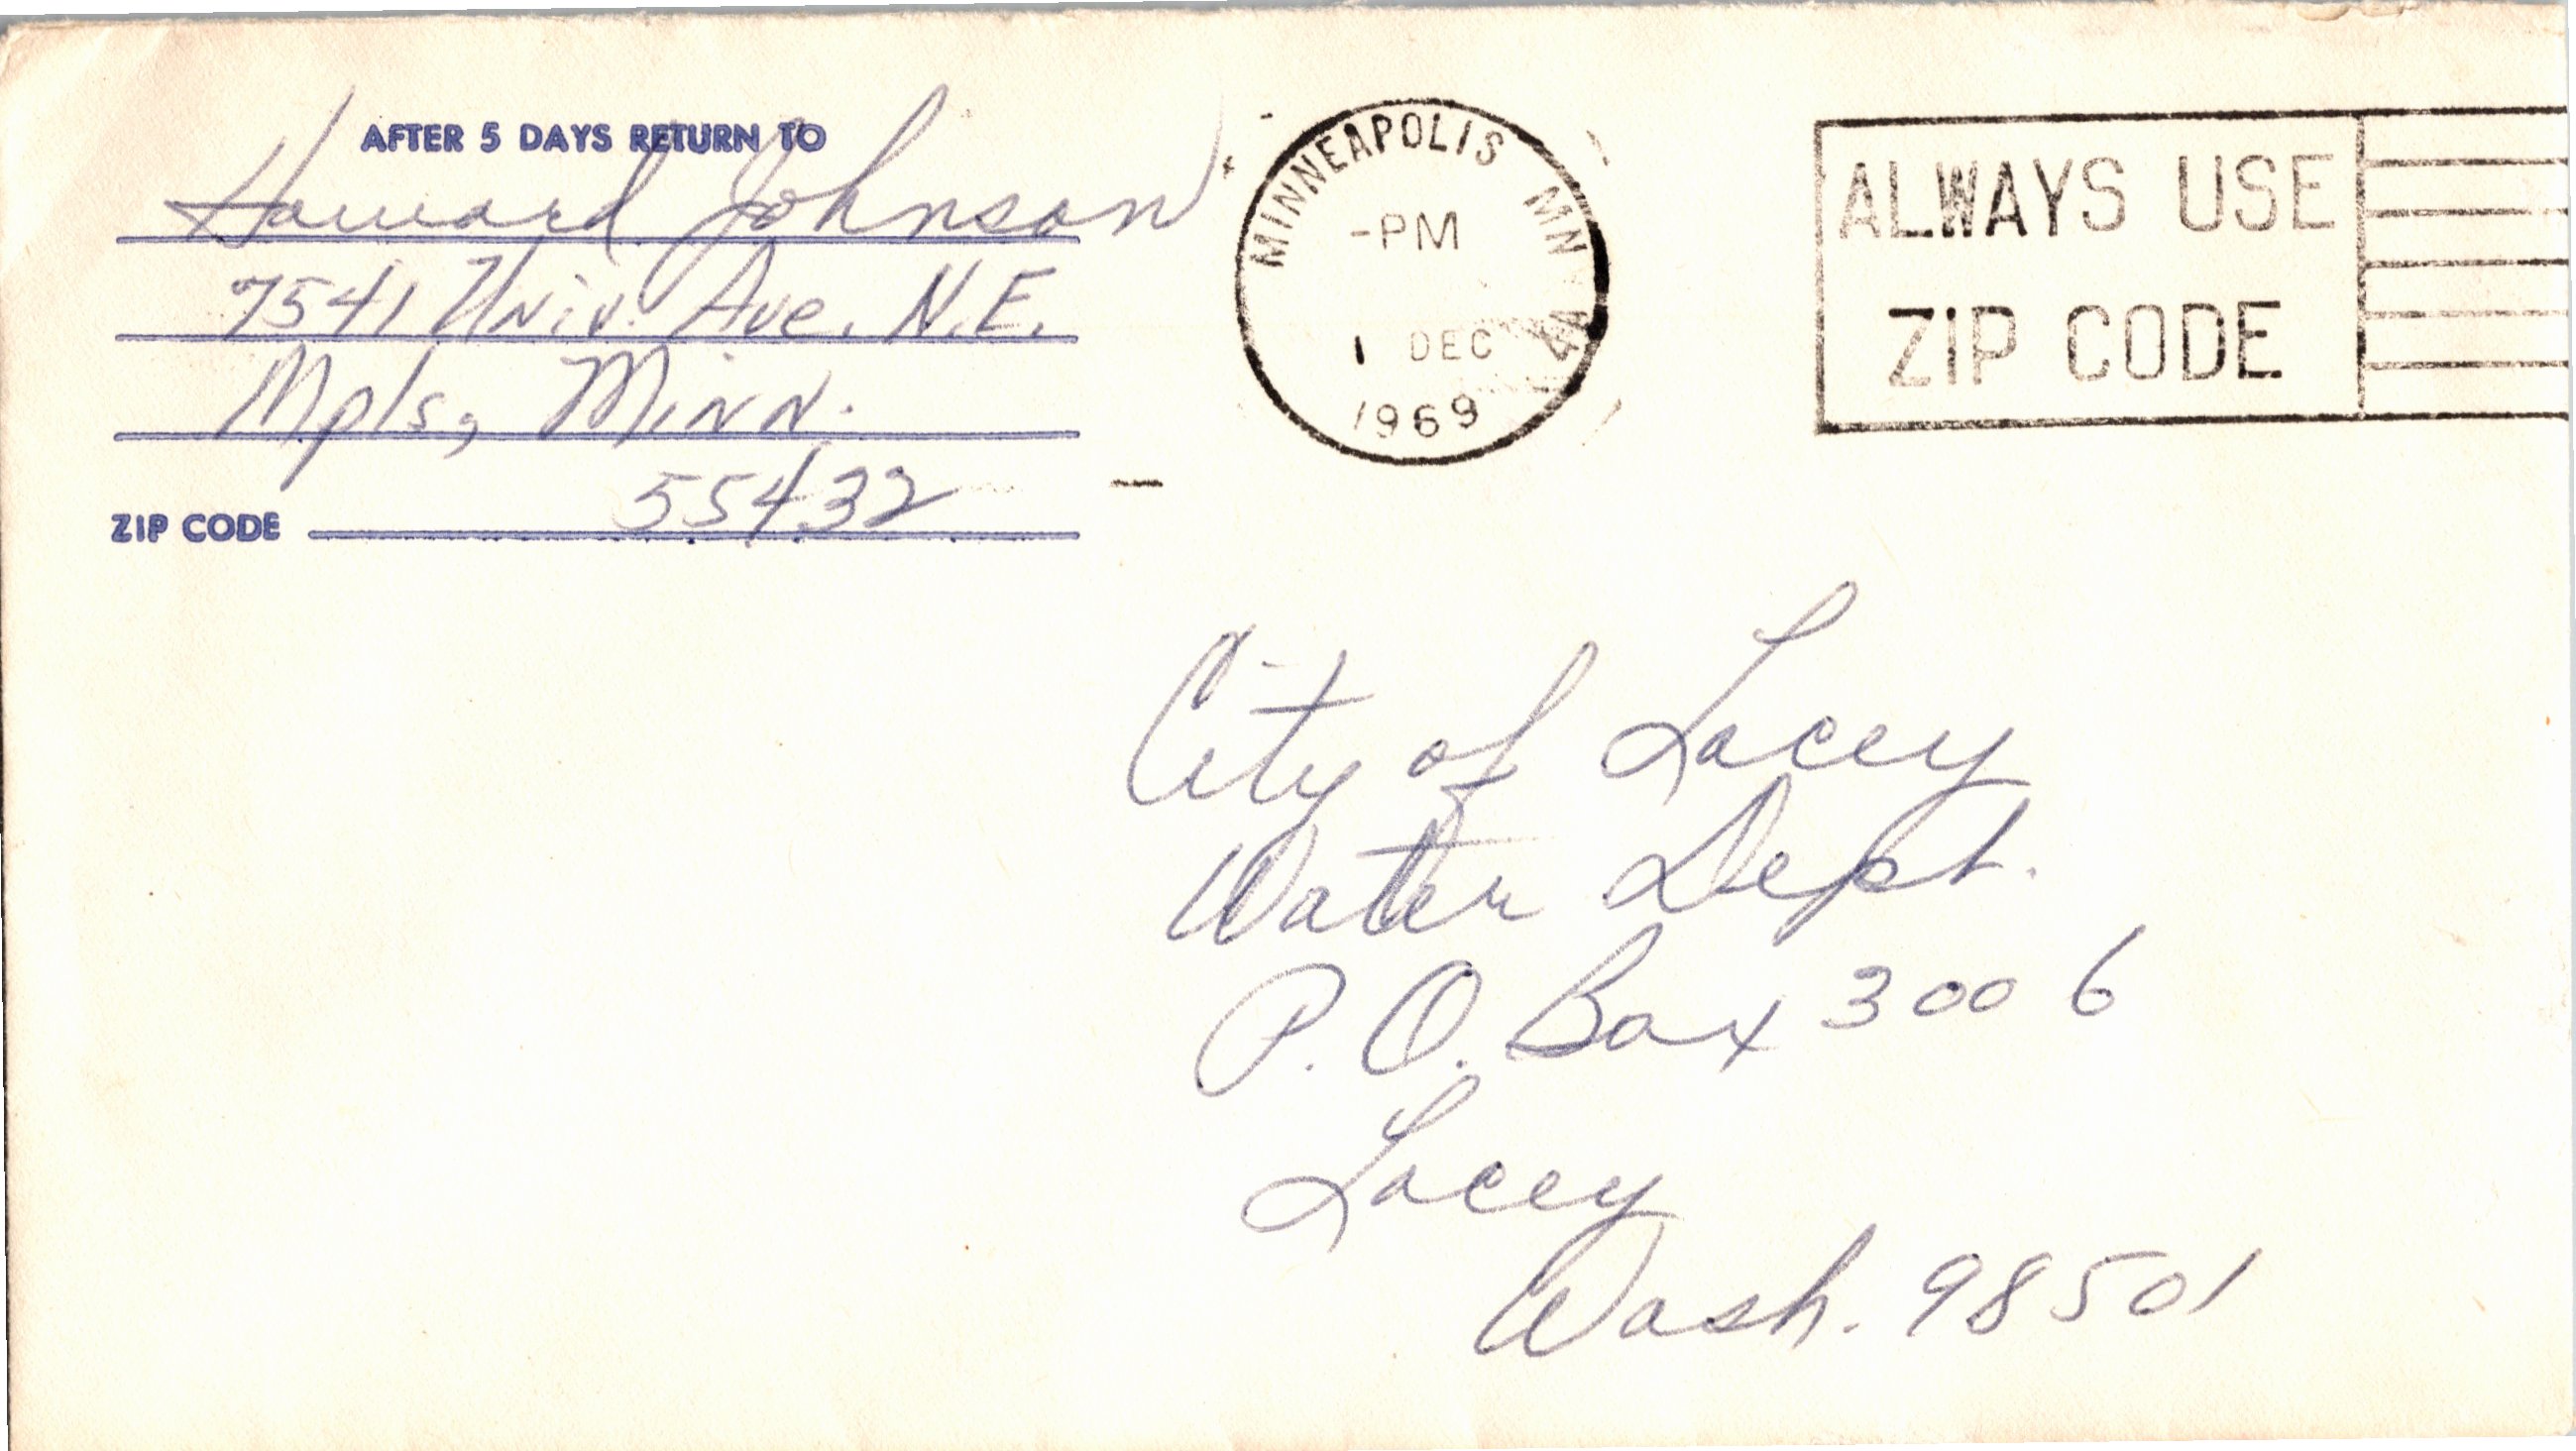 AFTER 5 DAYS RETURN TO
Howard Johnson
7541 Univ. Ave. N.E.
Mpls, Minn.
ZIP CODE 55432
MINNEAPOLIS MN
-PM
1 DEC
1969
ALWAYS USE
ZIP CODE
City of Lacey
Water Dept.
P.O. Box 3006
Lacey
Wash. 98501